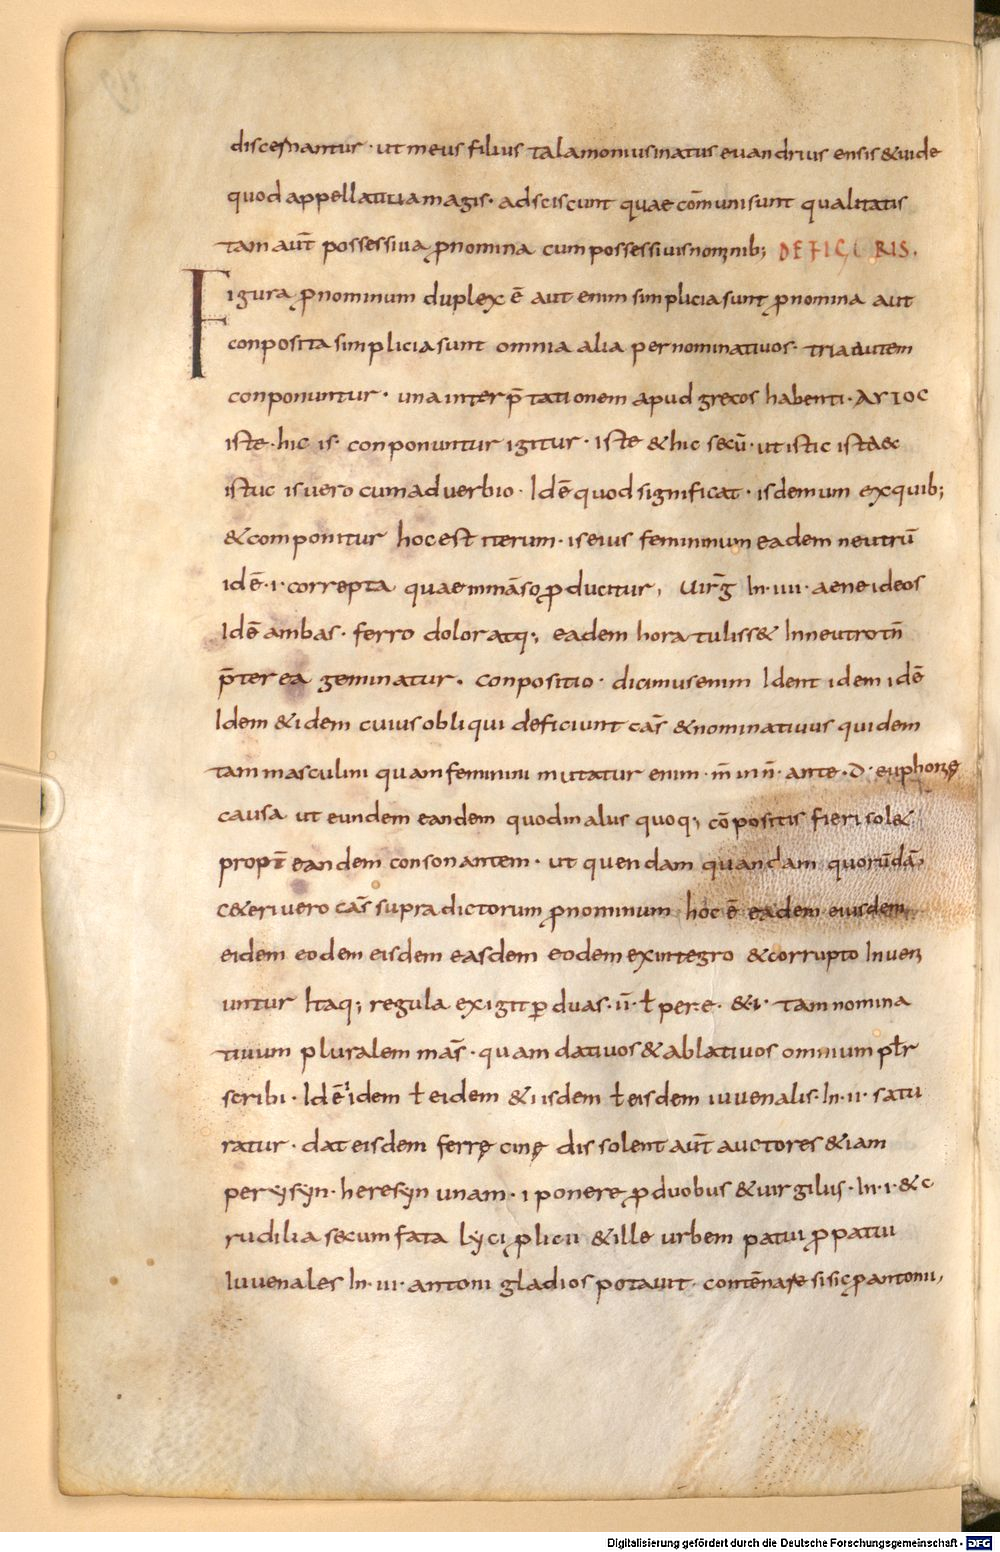 discernantur · ut meus filius talamonius inatus euandrius ensis & uide
quod appellatiua magis · adsciscunt quae cōmuni sunt qualitatis
tam aut̄ possessiua ꝓnomina cum possessiuis nominib; DE FIGURIS.
Figura ꝓnominum duplex ē aut enim simplicia sunt ꝓnomina aut
conposita simplicia sunt omnia alia per nominatiuos · tria autem
conponuntur · una interp̄tationem apud grecos habenti · AYTOC
iste · hic is · conponuntur igitur · iste & hic secū · ut istic istaec
istuc is uero cum aduerbio · Idē quod significat · is demum ex quib;
& componitur hoc est iterum · is eius femininum eadem neutrū
idē · i · correpta quae in māso ꝓducitur, Uirḡ In · iiii · aeneideos
Idē ambas · ferro dolor atq;, eadem hora tuliss& In neutro tn̄
p̄terea geminatur . conpositio · dicimus enim Ident idem idē
Idem & idem cuius obliqui deficiunt cas̄ & nominatiuus quidem
tam masculini quam feminini mittatur enim · m̄ in n̄ · ante · d · euphonię
causa ut eundem eandem quod in alus quoq; cō positis fieri sol&
propt̄ eandem consonantem · ut quendam quandam quorūdā
c&eri uero cas̄ supra dictorum ꝓnominum hoc ē eadem eiusdem
eidem eodem eisdem easdem eodem ex integro & corrupto Inueni
untur Itaq; regula exigit ꝑ duas · ii · ł per · e · & · i · tam nomina
tiuum pluralem mas̄ · quam datiuos & ablatiuos omnium płr
scribi · Idē idem ł eidem & iisdem ł eisdem iuuenalis · In · ii · satu
ratur · dat eisdem ferrę cinę dis solent aut̄ auctores & iam
per synheresyn unam · i ponere ꝓ duobus & uirgilus · In · i · & c
rudilia secum fata Lyci ꝓ licii & ille urbem patui ꝓ patui
Iuuenales In · iii · antoni gladios potauit · contēnare si sic ꝓ antonii,
Digitalisierung gefördert durch die Deutsche Forschungsgemeinschaft - DFG